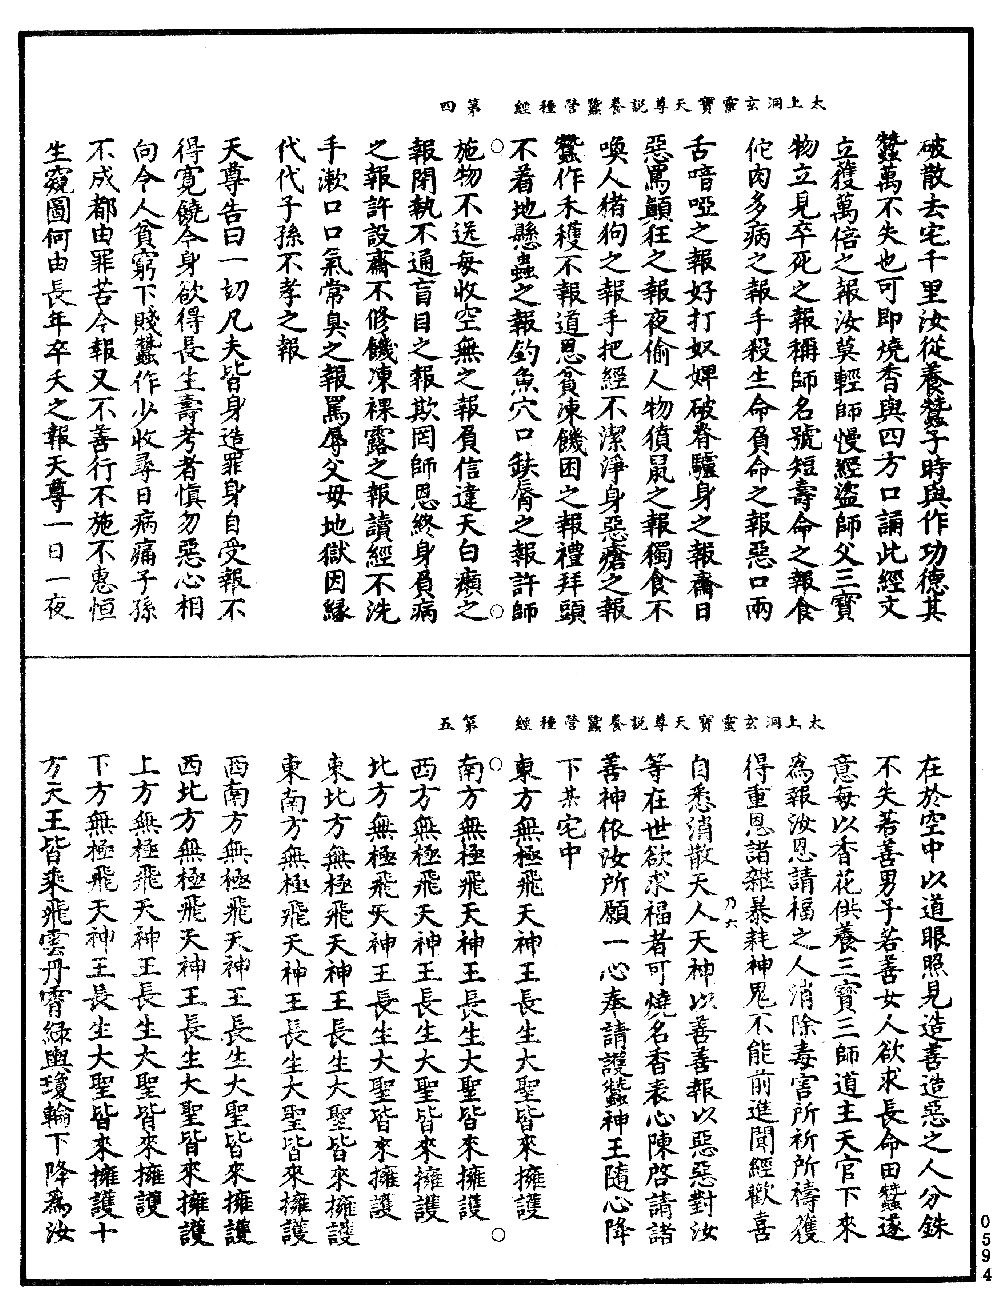 太上洞玄靈寶天尊說養蠶營種經　第四
破散去宅千里汝從養蠶子時與作功德其
蠶萬不失也可即燒香與四方口誦此經文
立獲萬倍之報汝莫輕師慢經盜師父三寶
物立見卒死之報稱師名號短壽命之報食
佗肉多病之報手殺生命負命之報惡口兩
舌喑啞之報好打奴婢破脊驢身之報齋日
惡罵顛狂之報夜偷人物償鼠之報獨食不
喚人猪狗之報手把經不潔淨身惡瘡之報
蠶作禾穫不報道恩貧凍饑困之報禮拜頭
不着地懸蟲之報釣魚穴口缺脣之報許師
施物不送每收空無之報負信違天白癩之
報閉執不通盲目之報欺罔師恩終身負病
之報許設齋不修饑凍裸露之報讀經不洗
手漱口口氣常臭之報罵辱父母地獄因緣
代代子孫不孝之報
天尊告曰一切凡夫皆身造罪身自受報不
得寬饒今身欲得長生壽考者慎勿惡心相
向今人貧窮下賤蠶作少收尋日病痛子孫
不成都由罪苦今報又不善行不施不惠恒
生窺圖何由長年卒夭之報天尊一日一夜
太上洞玄靈寶天尊說養蠶營種經　第五
在於空中以道眼照見造善造惡之人分銖
不失若善男子若善女人欲求長命田蠶遂
意每以香花供養三寶三師道主天官下來
為報汝恩請福之人消除毒害所祈所禱獲
得重恩諸雜暴耗神鬼不能前進聞經歡喜
乃六
自悉消散天人天神以善善報以惡惡對汝
等在世欲求福者可燒名香表心陳啓請諸
善神依汝所願一心奉請護蠶神王隨心降
下某宅中
東方無極飛天神王長生大聖皆來擁護
南方無極飛天神王長生大聖皆來擁護
西方無極飛天神王長生大聖皆來擁護
北方無極飛天神王長生大聖皆來擁護
東北方無極飛天神王長生大聖皆來擁護
東南方無極飛天神王長生大聖皆來擁護
西南方無極飛天神王長生大聖皆來擁護
西北方無極飛天神王長生大聖皆來擁護
上方無極飛天神王長生大聖皆來擁護
下方無極飛天神王長生大聖皆來擁護十
方天王皆乘飛雲丹霄綠輿瓊輪下降為汝
0594